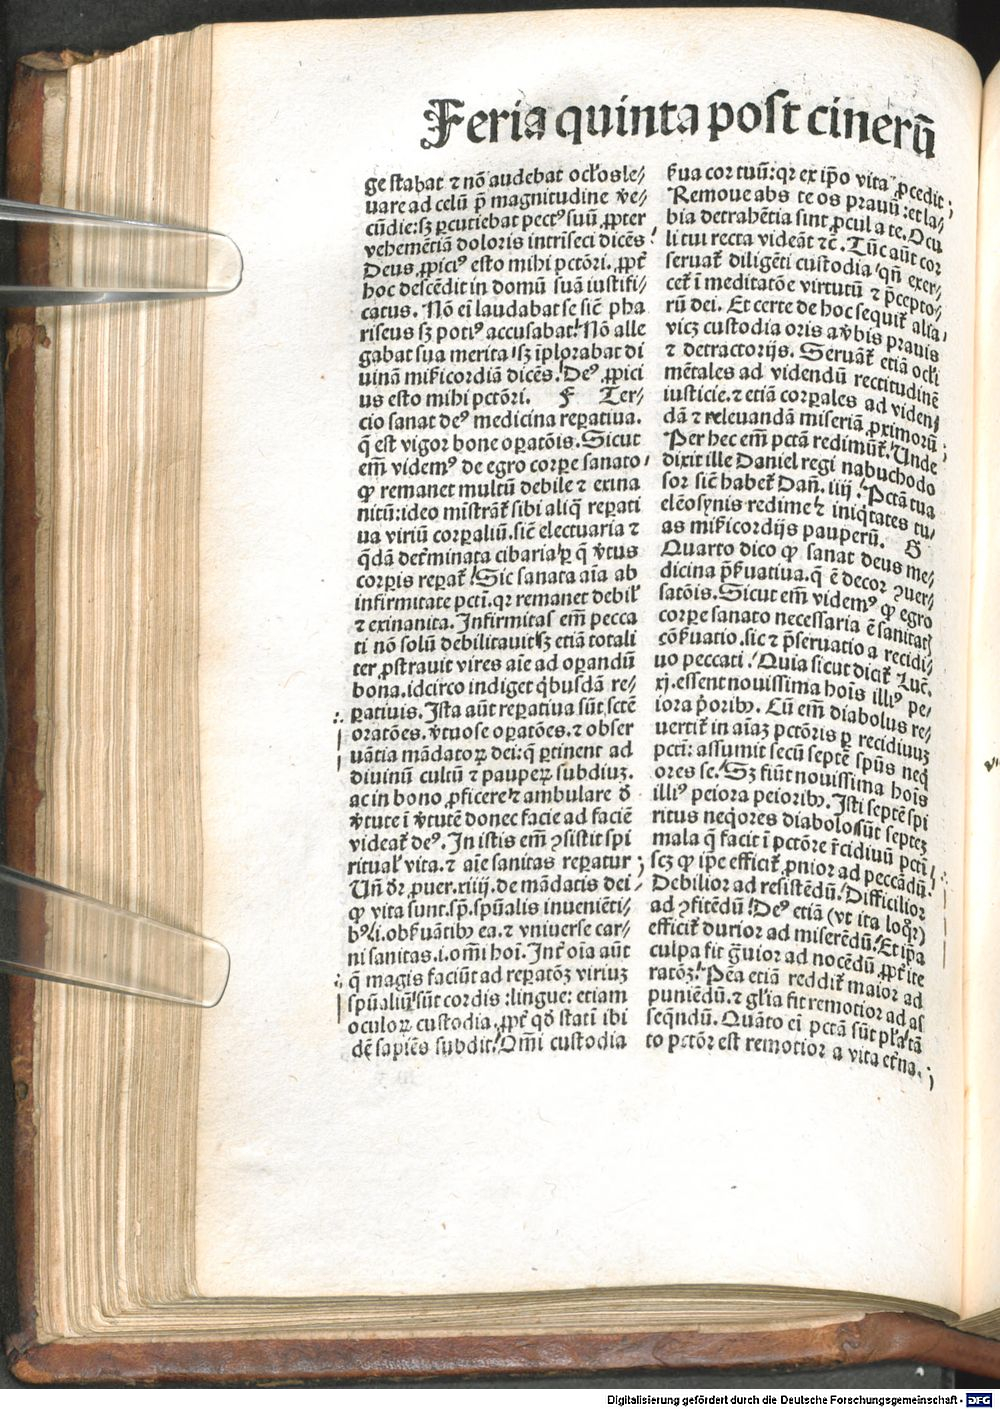 Feria quinta post cinerū
ge stabat ⁊ nō audebat ocl'os le⸗
uare ad celū p̄ magnitudine v̄e⸗
cūdie: sꝫ ꝑcutiebat pectꝰ suū ꝓpter
vehemētiā doloris intriseci dicēs:
Deus ꝓpiciꝰ esto mihi pctōri. ꝓpt̄
hoc descēdit in domū suā iustifi⸗
catus. Nō ei laudabat se sic̄ pha
riseus sꝫ potiꝰ accusabat! Nō alle
gabat sua merita / sꝫ īplorabat di
uinā mi̅icordiā dicēs. Deꝰ ꝓpici
us esto mihi pctōri. F Ter⸗
cio sanat deꝰ medicina reꝑatiua.
q̄ est vigor bone oꝑatōis. Sicut
em̄ videmꝰ de egro corꝑe sanato
ꝙ remanet multū debile ⁊ exina
nitū: ideo mistrat̄ sibi aliq̄ reꝑati
ua viriū corꝑaliū. sic̄ electuaria ⁊
q̄dā det̄minata cibaria / ꝑ q̄ v̄tus
corꝑis reꝑat̄! Sic sanata aīa ab
infirmitate pcti. qꝛ remanet debil'
⁊ exinanita. Infirmitas em̄ pecca
ti nō solū debilitauit / sꝫ etiā totali
ter ꝓstrauit vires aīe ad oꝑandū
bona. idcirco indiget q'busdā re⸗
ꝑatiuis. Ista aūt reꝑatiua sūt sctē
oratōes. v̄tuose oꝑatōes. ⁊ obser
uātia mādatoꝝ dei: q̄ ꝑtinent ad
diuinū cultū ⁊ pauꝑeꝝ subdiuꝫ.
ac in bono ꝓficere ⁊ ambulare d̄
v̄tute ī v̄tutē donec facie ad faciē
videat̄ deꝰ. In istis em̄ ꝯsistit spi
ritual' vita. ⁊ aīe sanitas reꝑatur ;
Un̄ dr̄ ꝓuer. xiiij. de mādatis dei⸗
ꝙ vita sunt. sp̄. spūalis inueniēti⸗
bꝰ / .i. obs'uātibꝫ ea. ⁊ vniuerse car⸗
ni sanitas. i. omī hoi. Int̄ oīa aūt
q̄ magis faciūt ad reꝑatōꝫ viriuꝫ
spūaliū / sūt cordis : lingue: etiam
oculoꝝ custodia. ꝓpt̄ qd̄ statī ibi
dē sapiēs subdit! Omī custodia
s̄ua cor tuū: qꝛ ex ip̄o vita ꝓcedit:
Remoue abs te os prauū: et la⸗
bia detrahētia sint ꝓcul a te. Ocu
li tui recta videāt ⁊c̄. Tūc aūt cor
seruat̄ diligēti custodia / qn̄ exer⸗
cet̄ ī meditatōe virtutū ⁊ p̄cepto⸗
rū dei. Et certe de hoc sequit̄ alia⸗
vicꝫ custodia oris a v̄bis prauis
⁊ detractorijs. Seruāt̄ etiā ocl'i
mētales ad videndū rectitudinē
iusticie. ⁊ etiā corꝑales ad viden⸗
dā ⁊ releuandā miseriā ꝓximorū:
Per hec em̄ pctā redimūt̄. Unde
dixit ille Daniel regi nabuchodo
sor sic̄ habet̄ Dan̄. iiij! Pctā tua
elēosynis redime / ⁊ iniq̄tates tu⸗
as mi̅icordijs pauperū. G
Quarto dico ꝙ sanat deus me⸗
dicina p̄s'uatiua. q̄ ē decor ꝯuer⸗
satōis. Sicut em̄ videmꝰ ꝙ egro
corꝑe sanato necessaria ē sanitatꝭ
cōs'uatio. sic ⁊ p̄seruatio a recidi⸗
uo peccati! Quia sicut dicit̄ Luc̄.
xj. essent nouissima hoīs illiꝰ pe⸗
iora p'oribꝫ. Cū em̄ diabolus re⸗
uertit̄ in aīaꝫ pctōris ꝑ recidiuuꝫ
pcti: assumit secū septē spūs neq̄
ores se. Sꝫ fiūt nouissima hoīs
illiꝰ peiora peioribꝫ. Isti septē spi
ritus neq̄ores diabolo / sūt septeꝫ
mala q̄ facit ī pctōre r̄cidiuū pcti
scꝫ ꝙ ip̄e efficit̄ ꝓnior ad peccādū:
Debilior ad resistēdū! Difficilior
ad ꝯfitēdū! Deꝰ etiā (vt ita loq̄r)
efficit̄ durior ad miserēdū! Et ip̄a
culpa fit gꝛ̄uior ad nocēdū ꝓpt̄ ite
ratōꝫ! Pēa etiā reddit̄ maior ad
puniēdū. ⁊ gl'ia fit remotior ad as
seq̄ndū. Quāto ei pctā sūt pl'a / tā
to pctōr est remotior a vita et̄na.